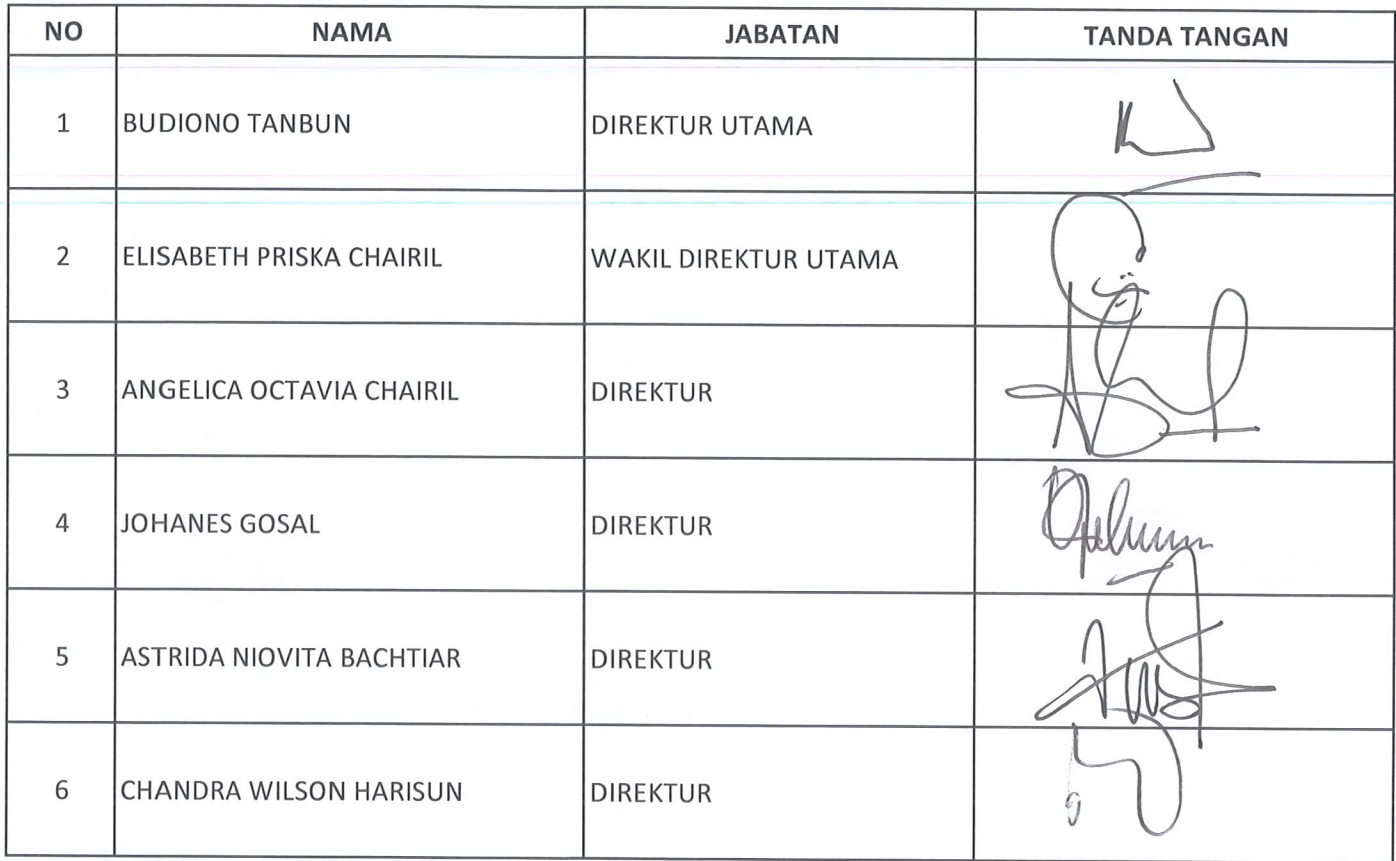 NO NAMA JABATAN TANDA TANGAN
1 BUDIONO TANBUN DIREKTUR UTAMA
2 ELISABETH PRISKA CHAIRIL WAKIL DIREKTUR UTAMA
3 ANGELICA OCTAVIA CHAIRIL DIREKTUR
4 JOHANES GOSAL DIREKTUR
5 ASTRIDA NIOVITA BACHTIAR DIREKTUR
6 CHANDRA WILSON HARISUN DIREKTUR